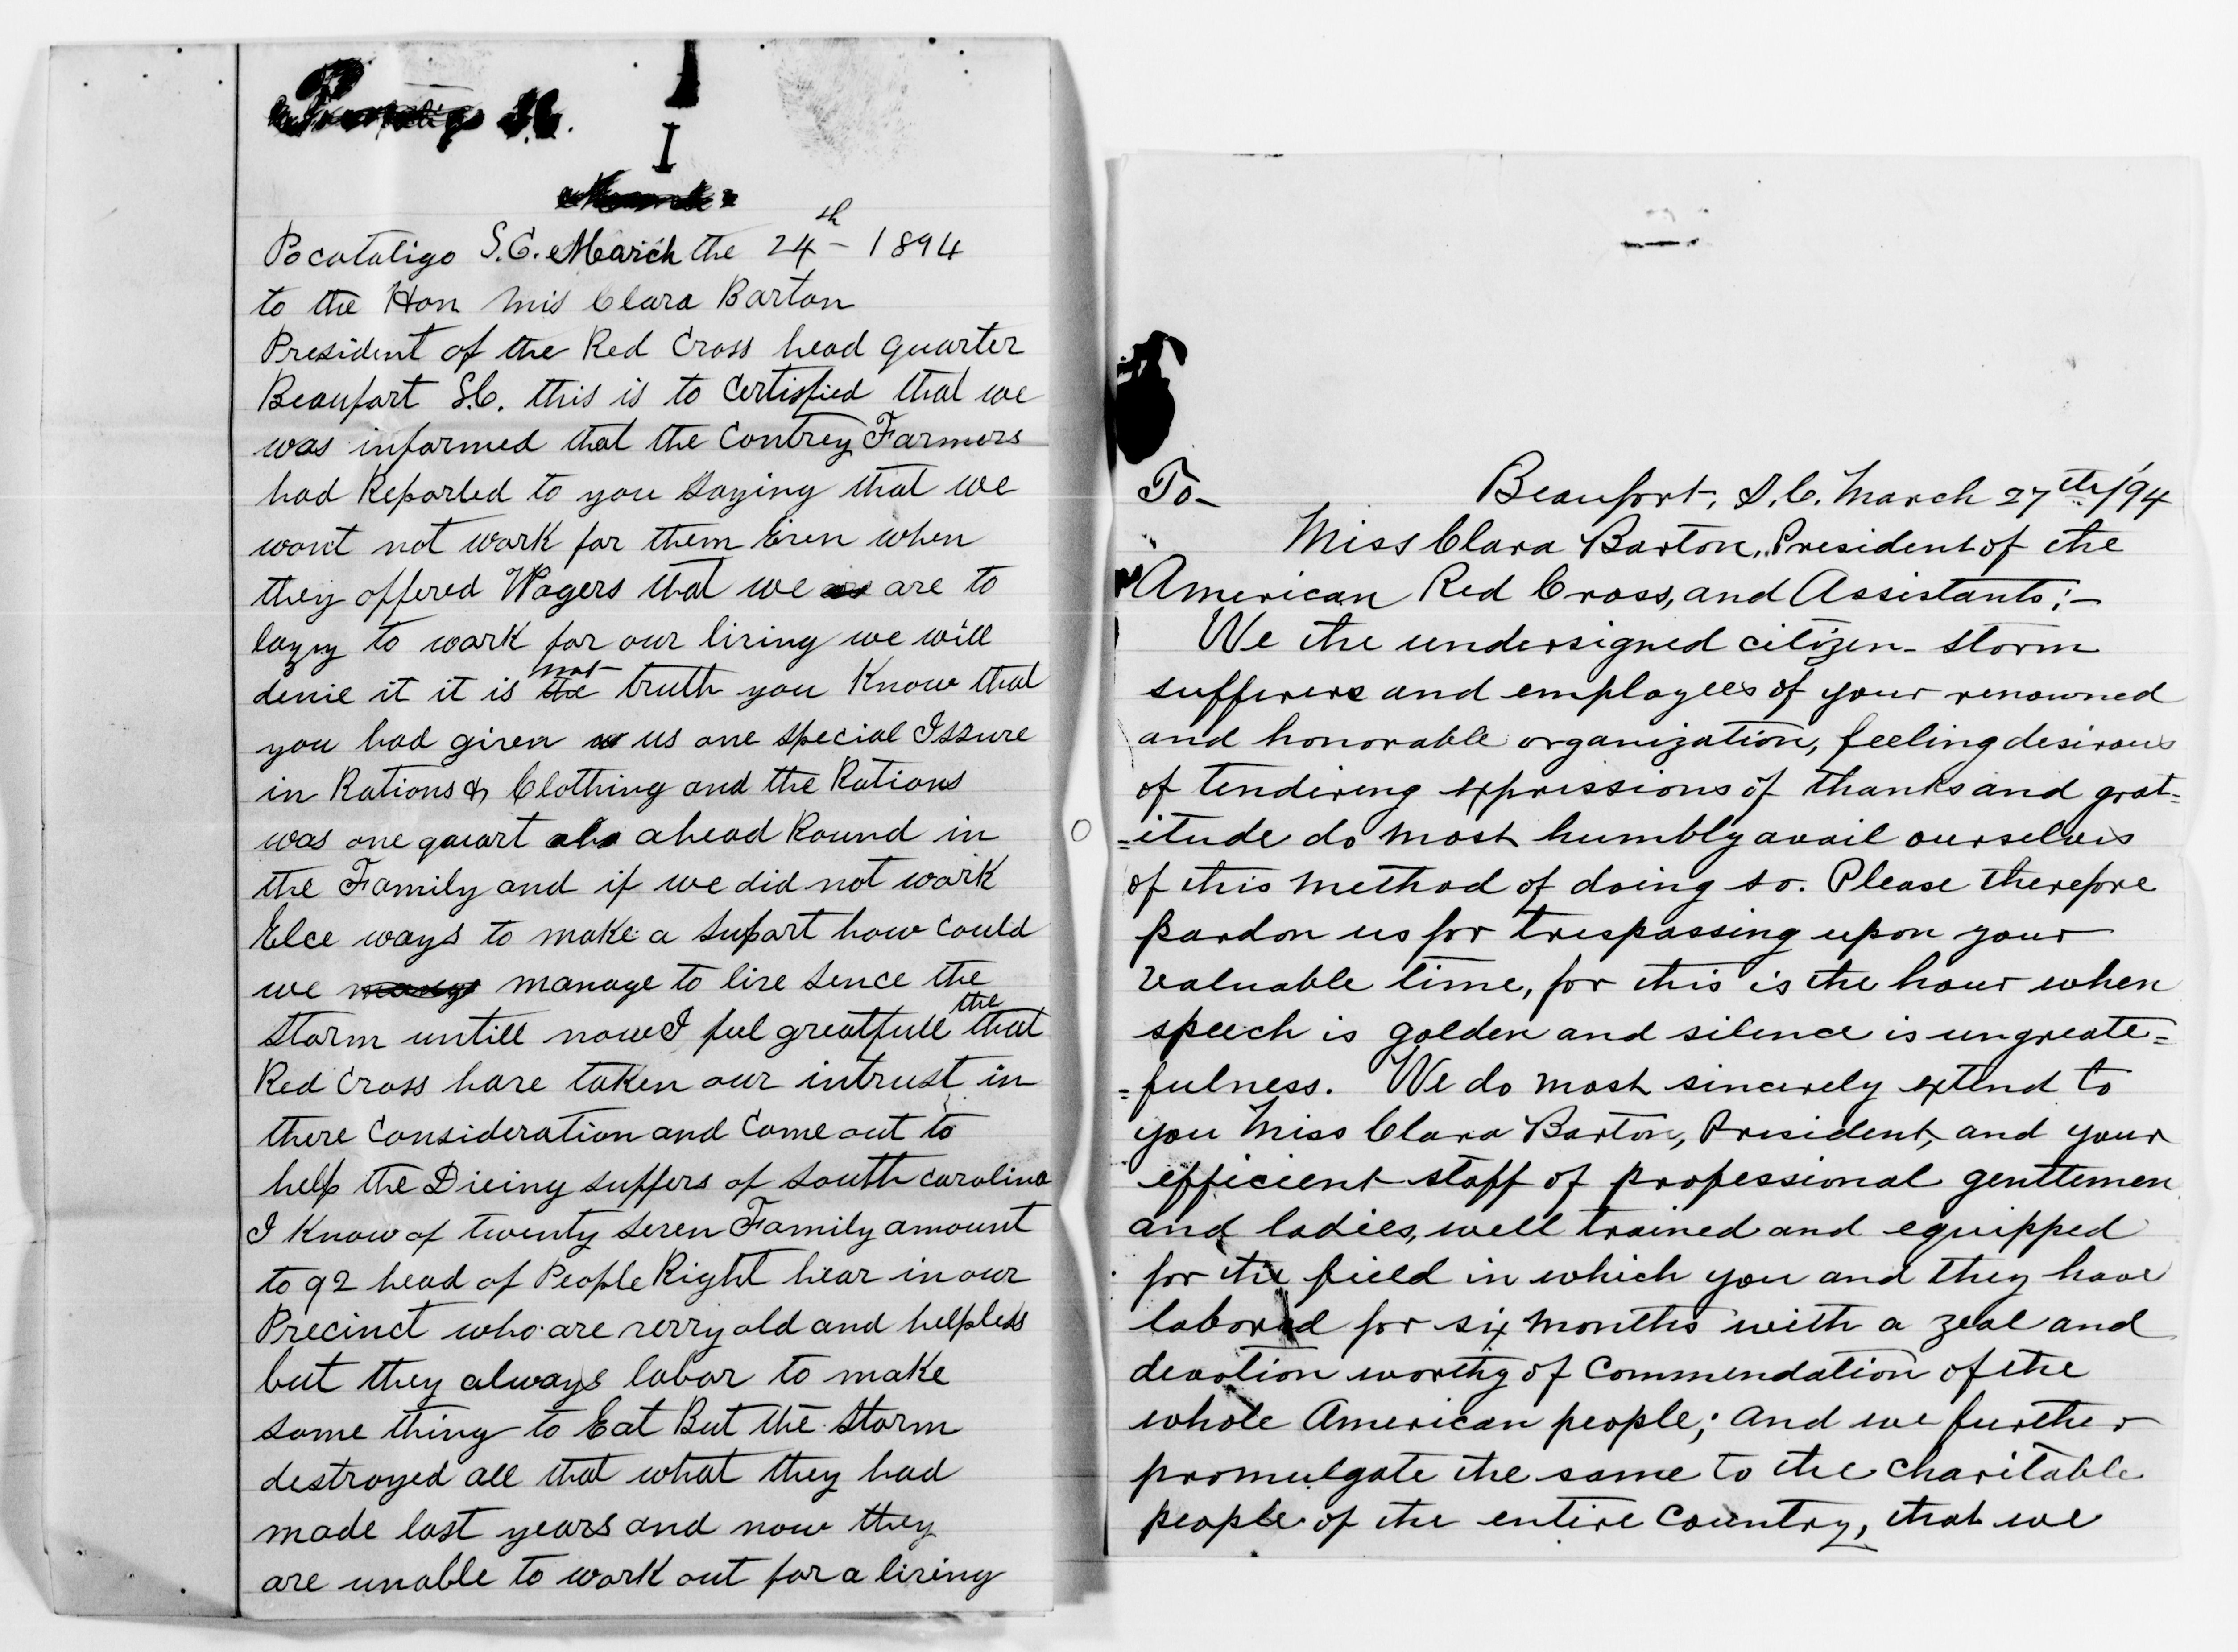 I
Pocotaligo S.C. March the 24th 1894
to the Hon Mis Clara Barton
President of the Red Cross head quarter
Beaufort S.C. this is to Certisfied that we
was informed that the Contrey Farmers
had Reported to you Saying that we
wont not work for them Even when
they offered Wagers that we are to
lazzy to work for our living we will
denie it it is not truth you Know that
you had given us one special Issure
in Rations & Clothing and the Rations
was one quart ahead Round in
the Family and if we did not work
Elce ways to make a Suport how Could
we manage to live Sence the
Storm untill now I feel greatfull the that
Red Cross have taken our intrust in
there Consideration and Come out to
help the Dieing suffers of South carolina
I Know of twenty Seven Family amount
to 92 head of People Right hear in our
Precinct who are verry old and helpless
but they always labor to make
some thing to Eat But the Storm
destroyed all that what they had
made last years and now they
are unable to work out for a living
To- Beaufort, S.C. March 27th/'94
Miss Clara Barton, President of the
American Red Cross, and Assistants:-
We the undersigned citizen-storm
sufferers and employees of your renowned
and honorable organization, feeling desirous
of tendering expressions of thanks and grat=
=itude do most humbly avail ourselves
of this method of doing so. Please therefore
pardon us for trespassing upon your
valuable time, for this is the hour when
speech is golden and silence is ungreate=
=fulness. We do most sincerely extend to
you Miss Clara Barton, President, and your
efficient staff of professional genttemen
and ladies, well trained and equipped
for the field in which you and they have
labored for six months with a zeal and
devotion worthy of Commendation of the
whole American people; and we further
promulgate the same to the charitable
people of the entire Country, that we